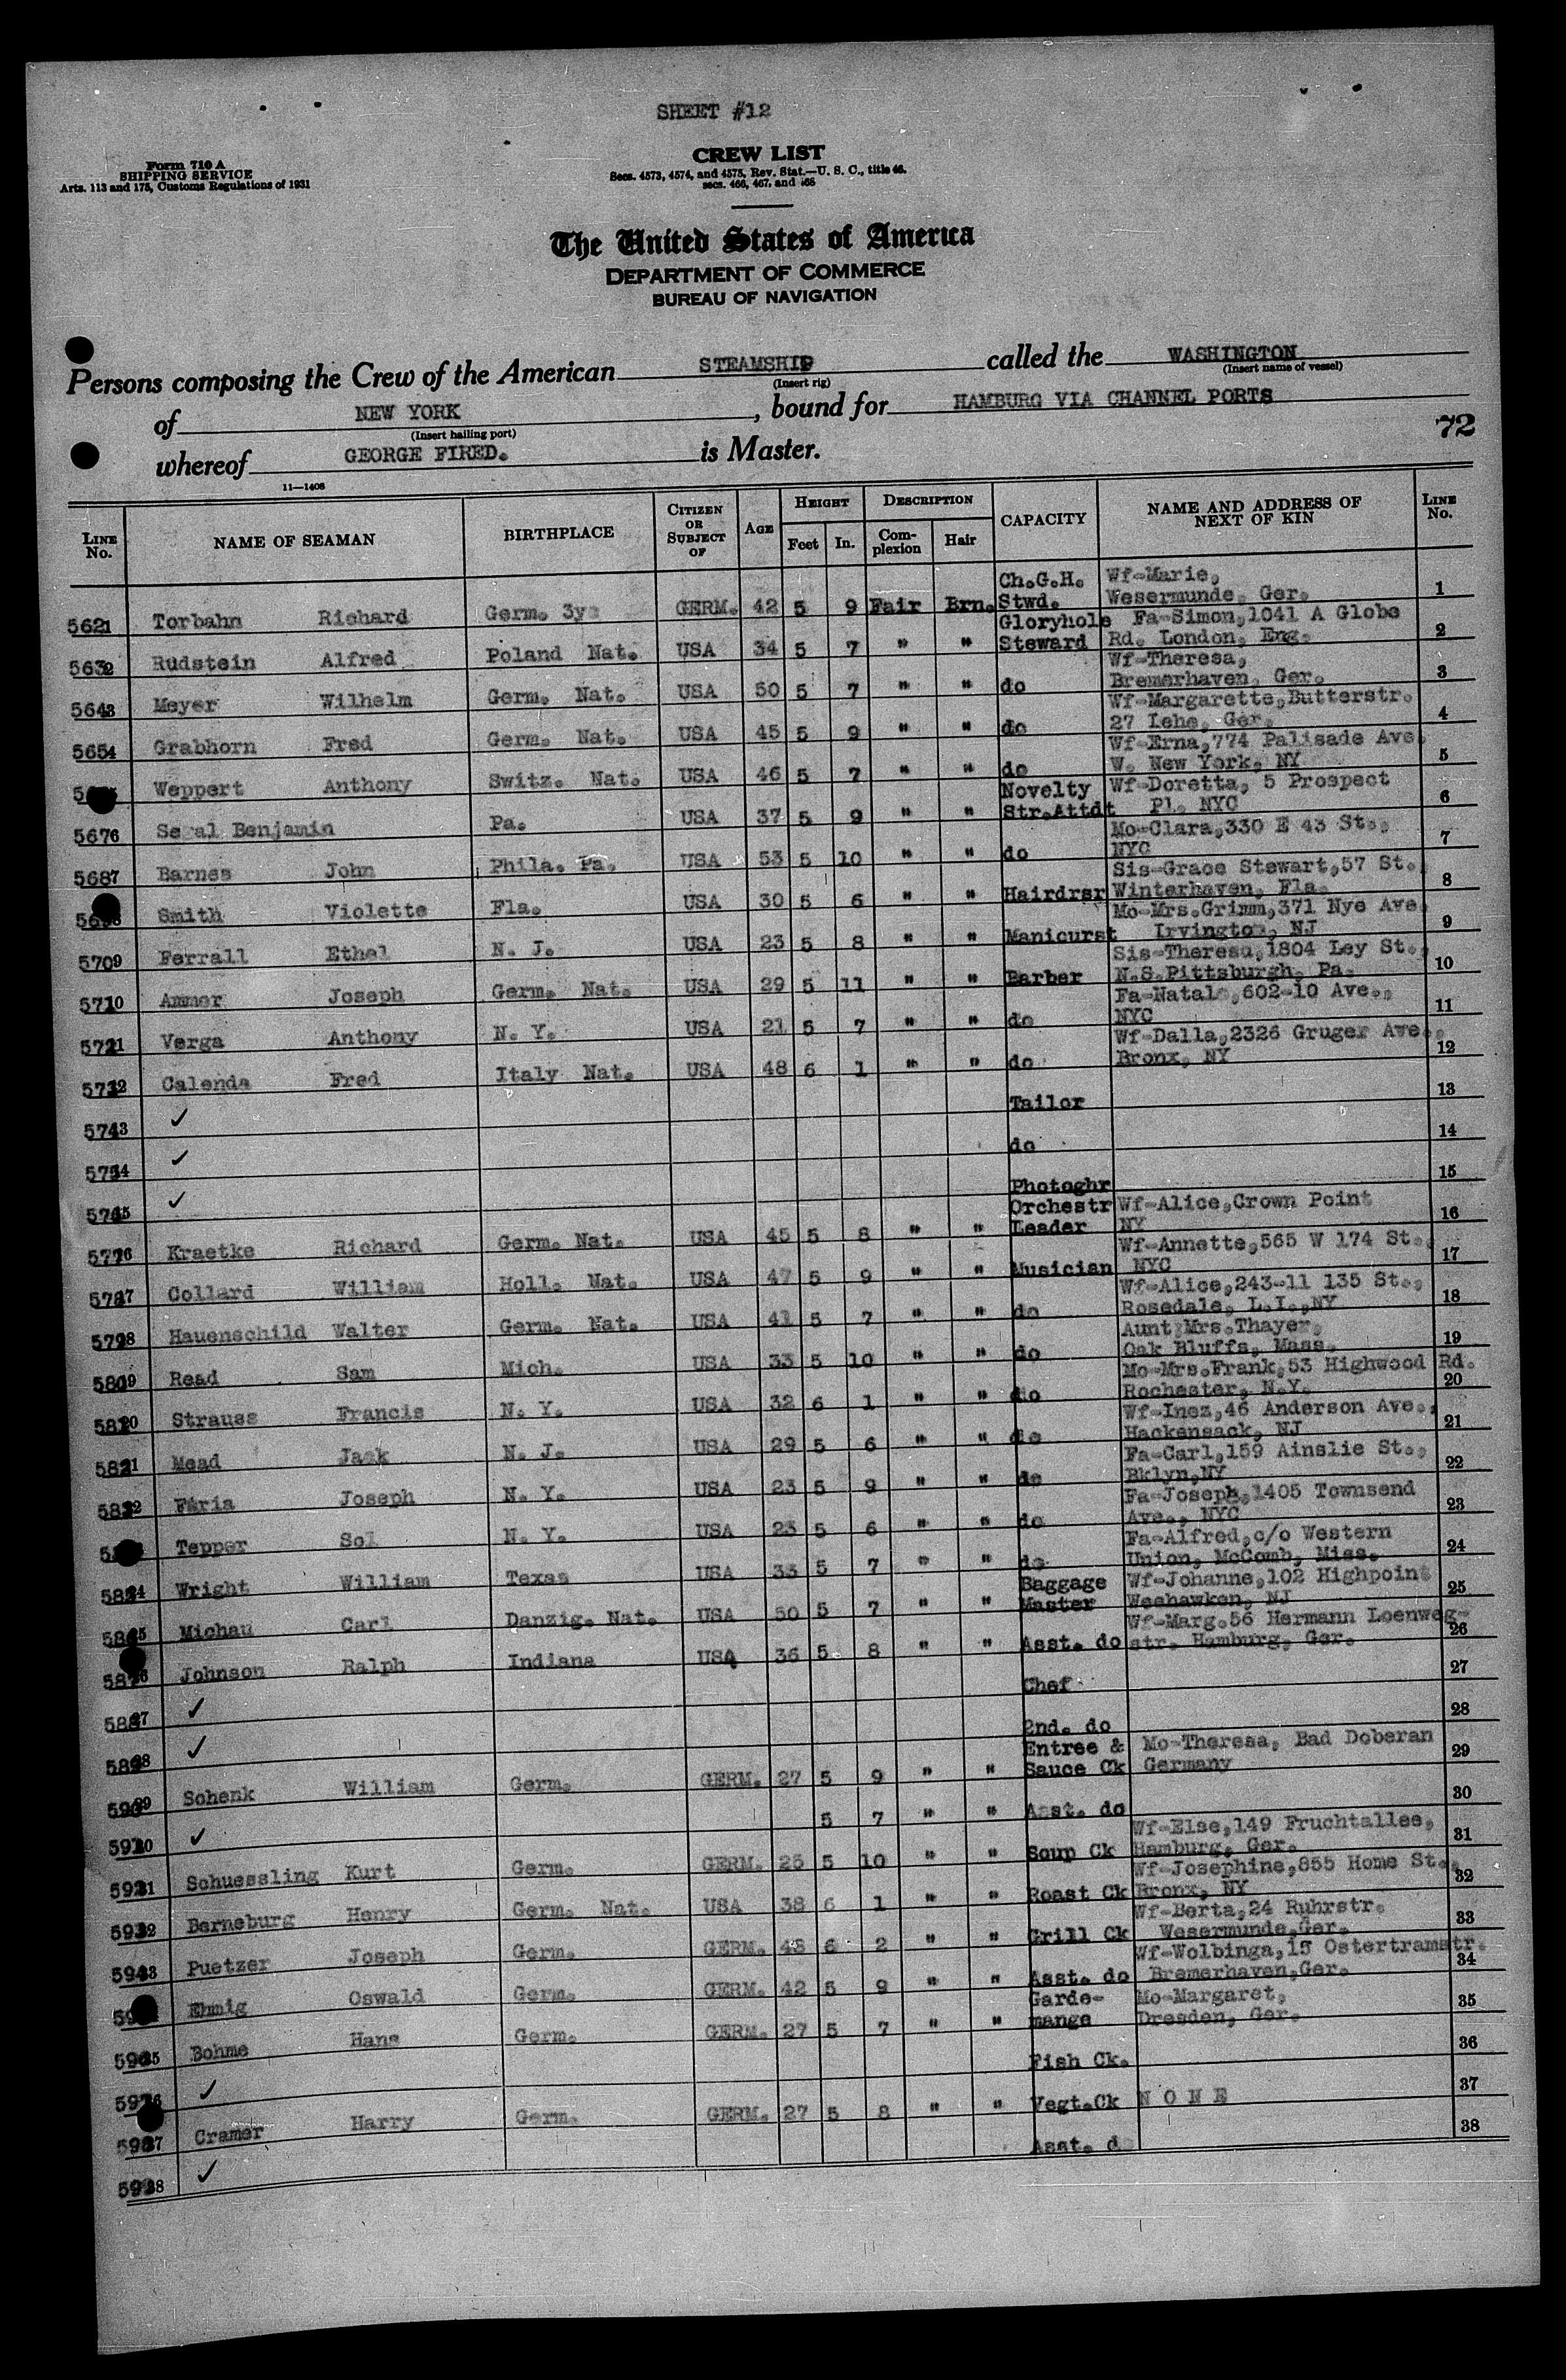 SHEET #12
Form 710 A
SHIPPING SERVICE
Arts. 113 and 175, Customs Regulations of 1931
CREW LIST
Secs. 4573, 4574, and 4575, Rev. Stat.—U. S. C., title 46,
secs. 466, 467, and 468
The United States of America
DEPARTMENT OF COMMERCE
BUREAU OF NAVIGATION
Persons composing the Crew of the American STEAMSHIP called the WASHINGTON
(Insert rig) (Insert name of vessel)
of NEW YORK, bound for HAMBURG VIA CHANNEL PORTS
(Insert hailing port)
72
whereof GEORGE FIRED. is Master.
11—1408
LINE No. NAME OF SEAMAN BIRTHPLACE CITIZEN OR SUBJECT OF AGE HEIGHT Feet In. DESCRIPTION Complexion Hair CAPACITY NAME AND ADDRESS OF NEXT OF KIN LINE No.
562 1 Torbahn Richard Germ. 3ys GERM. 42 5 9 Fair Brn. Ch.G.H. Stwd. Wf-Marie, Wesermunde, Ger. 1
563 2 Rudstein Alfred Poland Nat. USA 34 5 7 " " Gloryhole Steward Fa-Simon,1041 A Globe Rd. London, Eng. 2
564 3 Meyer Wilhelm Germ. Nat. USA 50 5 7 " " do Wf-Theresa, Bremerhaven, Ger. 3
565 4 Grabhorn Fred Germ. Nat. USA 45 5 9 " " do Wf-Margarette,Butterstr. 27 Lehe, Ger. 4
Weppert Anthony Switz. Nat. USA 46 5 7 " " do Wf-Erna,774 Palisade Ave. W. New York, NY 5
567 6 Segal Benjamin Pa. USA 37 5 9 " " Novelty Str.Attdt Wf-Doretta, 5 Prospect Pl. NYC 6
568 7 Barnes John Phila. Pa. USA 53 5 10 " " do Mo-Clara,330 E 43 St., NYC 7
Smith Violette Fla. USA 30 5 6 " " Hairdrsr Sis-Grace Stewart,57 St. Winterhaven, Fla. 8
570 9 Ferrall Ethel N. J. USA 23 5 8 " " Manicurst Mo-Mrs.Grimm,371 Nye Ave. Irvington, NJ 9
571 10 Ammer Joseph Germ. Nat. USA 29 5 11 " " Barber Sis-Theresa,1804 Ley St., N.S.Pittsburgh, Pa. 10
572 11 Verga Anthony N. Y. USA 21 5 7 " " do Fa-Natale,602-10 Ave., NYC 11
573 12 Calenda Fred Italy Nat. USA 48 6 1 " " do Wf-Dalla,2326 Gruger Ave., Bronx, NY 12
574 13 ✓ Tailor 13
575 14 ✓ do 14
576 15 ✓ Photoghr 15
577 16 Kraetke Richard Germ. Nat. USA 45 5 8 " " Orchestr Leader Wf-Alice,Crown Point NY 16
578 17 Collard William Holl. Nat. USA 47 5 9 " " Musician Wf-Annette,565 W 174 St., NYC 17
579 18 Hauenschild Walter Germ. Nat. USA 41 5 7 " " do Wf-Alice,243-11 135 St., Rosedale, L.I.,NY 18
580 19 Read Sam Mich. USA 33 5 10 " " do Aunt Mrs.Thayer, Oak Bluffs, Mass. 19
581 20 Strauss Francis N. Y. USA 32 6 1 " " do Mo-Mrs.Frank,53 Highwood Rd. Rochester, N.Y. 20
582 21 Mead Jack N. J. USA 29 5 6 " " do Wf-Inez,46 Anderson Ave., Hackensack, NJ 21
583 22 Faria Joseph N. Y. USA 23 5 9 " " do Fa-Carl,159 Ainslie St., Bklyn,NY 22
Tepper Sol N. Y. USA 23 5 6 " " do Fa-Joseph,1405 Townsend Ave., NYC 23
585 24 Wright William Texas USA 33 5 7 " " do Fa-Alfred,c/o Western Union, McComb, Miss. 24
586 25 Michau Carl Danzig. Nat. USA 50 5 7 " " Baggage Master Wf-Johanne,102 Highpoint Weehawken, NJ 25
587 26 Johnson Ralph Indiana USA 36 5 8 " " Asst. do Wf-Marg.56 Hermann Loenweg-str. Hamburg, Ger. 26
588 27 ✓ Chef 27
589 28 ✓ 2nd. do 28
590 29 Schenk William Germ. GERM. 27 5 9 " " Entree & Sauce Ck Mo-Theresa, Bad Doberan Germany 29
591 30 ✓ 5 7 " " Asst. do 30
592 31 Schuessling Kurt Germ. GERM. 25 5 10 " " Soup Ck Wf-Else,149 Fruchtallee, Hamburg, Ger. 31
593 32 Berneburg Henry Germ. Nat. USA 38 6 1 " " Roast Ck Wf-Josephine,855 Home St., Bronx, NY 32
594 33 Puetzer Joseph Germ. GERM. 43 6 2 " " Grill Ck Wf-Berta,24 Ruhrstr. Wesermunde,Ger. 33
Ehmig Oswald Germ. GERM. 42 5 9 " " Asst. do Wf-Wolbinga,15 Ostertramstr. Bremerhaven,Ger. 34
596 35 Bohme Hans Germ. GERM. 27 5 7 " " Garde-mange Mo-Margaret, Dresden, Ger. 35
597 36 ✓ Fish Ck. 36
598 37 Cramer Harry Germ. GERM. 27 5 8 " " Vegt.Ck N O N E 37
599 38 ✓ Asst. do 38